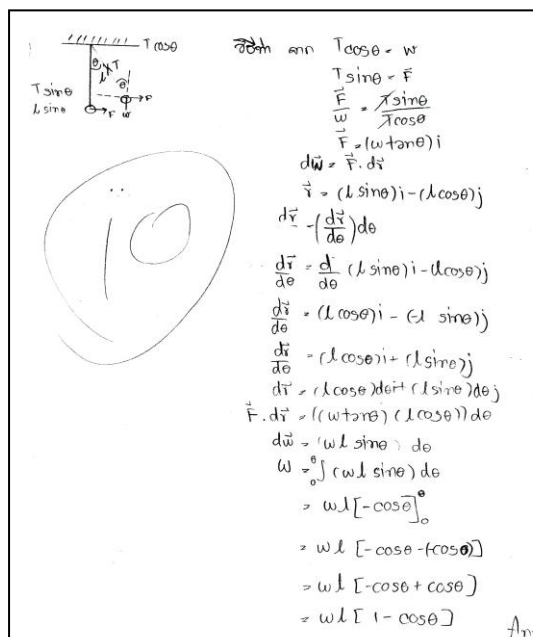 T cosθ
θ T
l
θ
T sinθ
l sinθ
F
F
w
วิธีทำ จาก T cosθ = w
T sinθ = F⃗
F⃗/w = T sinθ / T cosθ
F⃗ = (w tanθ)i
dw⃗ = F⃗ . dr⃗
r⃗ = (l sinθ)i - (l cosθ)j
dr⃗ = (dr⃗/dθ) dθ
dr⃗/dθ = d/dθ (l sinθ)i - (l cosθ)j
dr⃗/dθ = (l cosθ)i - (-l sinθ)j
dr⃗/dθ = (l cosθ)i + (l sinθ)j
dr⃗ = (l cosθ)dθi + (l sinθ)dθj
F⃗ . dr⃗ = ((w tanθ) (l cosθ)) dθ
dw⃗ = (wl sinθ) dθ
W = ₀∫^θ (wl sinθ) dθ
= wl [-cosθ]₀^θ
= wl [-cosθ - (-cos0)]
= wl [-cosθ + cosθ]
= wl [1 - cosθ]
10